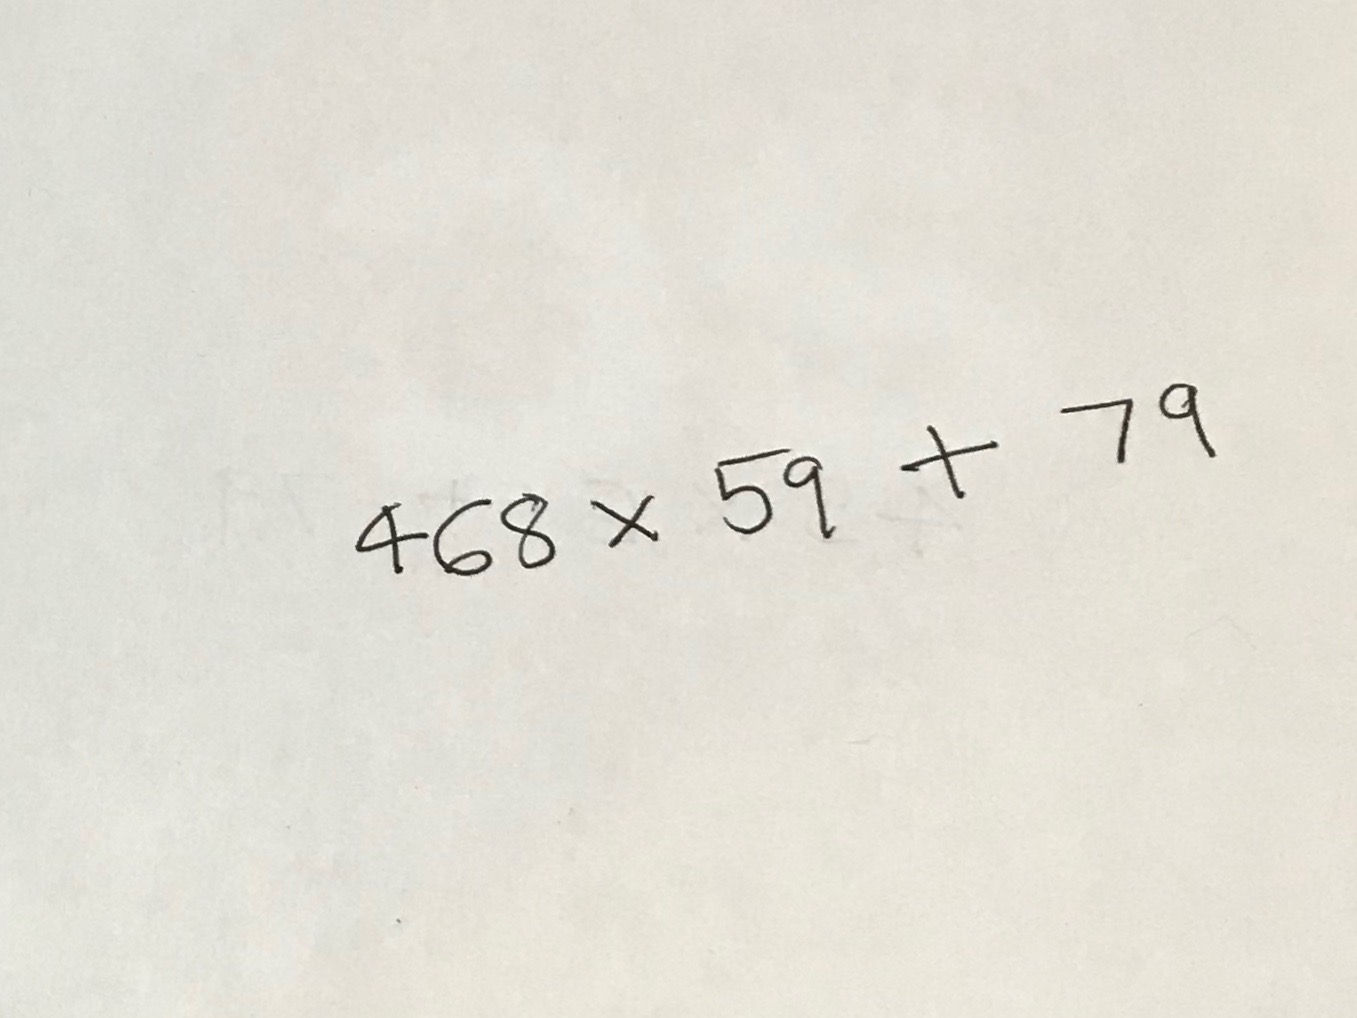 468 × 59 + 79